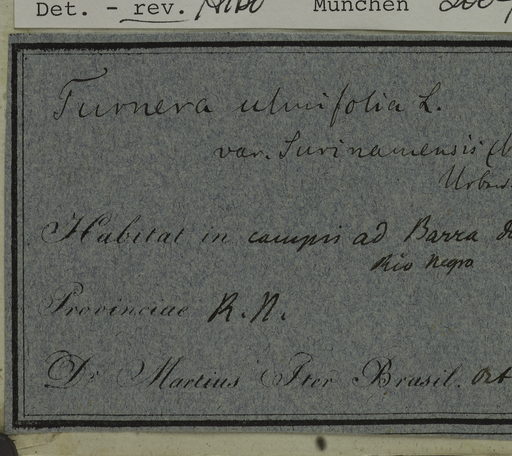 Det. - rev. München
Turnera ulmifolia L.
var. Surinamensis (
Urban
Habitat in campis ad Barra do
Rio Negro
Provinciae R. N.
Dr Martius Iter Brasil. Oct